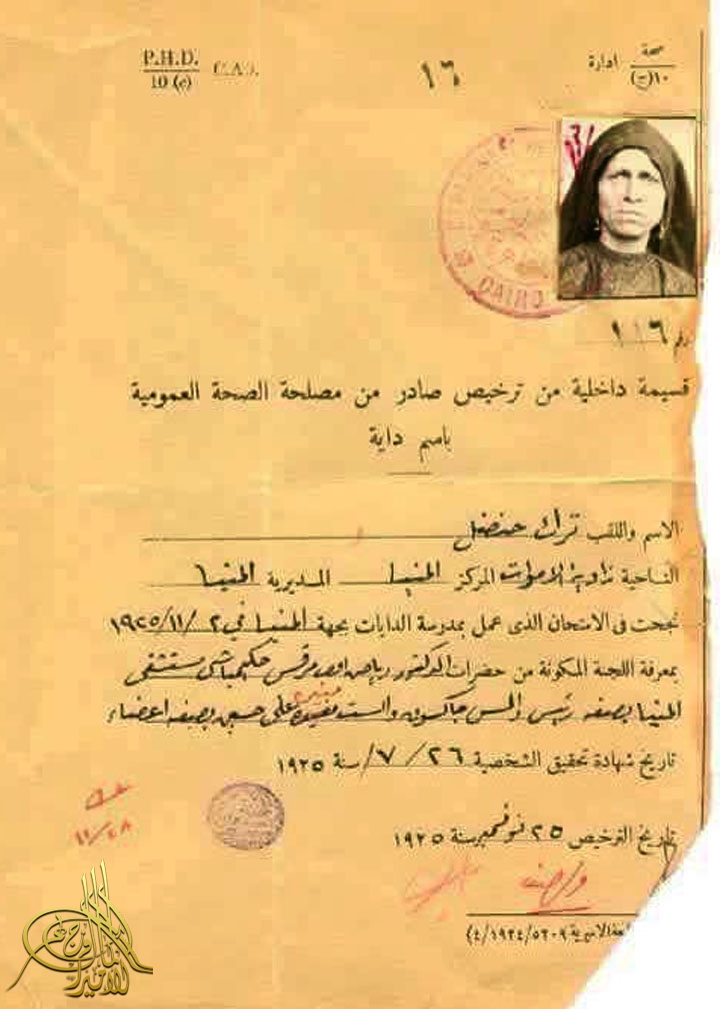 P.H.D.
10 (c)
صحة
١٠(ج)
ادارة
١٦
CAIRO
رقم ١١٦
قسيمة داخلية من ترخيص صادر من مصلحة الصحة العمومية
باسم داية
الاسم واللقب ترك حنضل
الناحية زاوية الاموات المركز المنيا المديرية المنيا
نجحت فى الامتحان الذى عمل بمدرسة الدايات بجهة المنيا في ٢/١١/١٩٢٥
بمعرفة اللجنة المكونة من حضرات الدكتور رياض مرقس حكيمباشى مستشفى
المنيا بصفه رئيس والمس جاكسون والست على حسين بصفه اعضاء
تاريخ شهادة تحقيق الشخصية ٢٦/٧/ سنة ١٩٢٥
تاريخ الترخيص ٢٥ نوفمبر سنة ١٩٢٥
١١/٢٨
الاميرية ٥٢٠٩/١٩٢٤/٤)